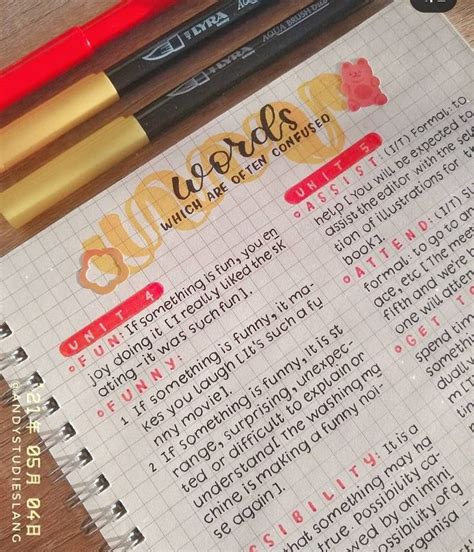 LYRA AQUA BRUSH DUO
LYRA AQUA BRUSH DUO
words
WHICH ARE OFTEN CONFUSED
UNIT 4
FUN: If something is fun, you en
joy doing it [I really liked the sk
ating - it was such fun].
FUNNY:
1 If something is funny, it ma-
kes you laugh [It's such a fu
nny movie].
2 If something is funny, it is st
range, surprising, unexpec-
ted or difficult to explain or
understand [The washing ma
chine is making a funny noi-
se again].
SSIBILITY: It is a
hat something may
true. Possibility ca-
owed by an infini
UNIT 5
ASSIST: (I/T) Formal: to
help [You will be expected to
assist the editor with the
tion of illustrations for
book].
ATTEND: (I/T)
formal: to go to a
ace, etc [The mee
fifth and we're
one will atte
GET TO
spend tim
somet
dually
m
'21年 05月 04日
@ANDYSTUDIESLANG